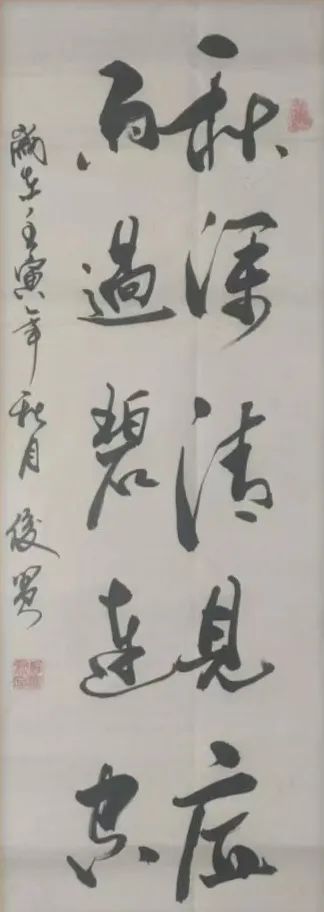 秋深清見底
雨過碧連空
歲在壬寅年秋月俊